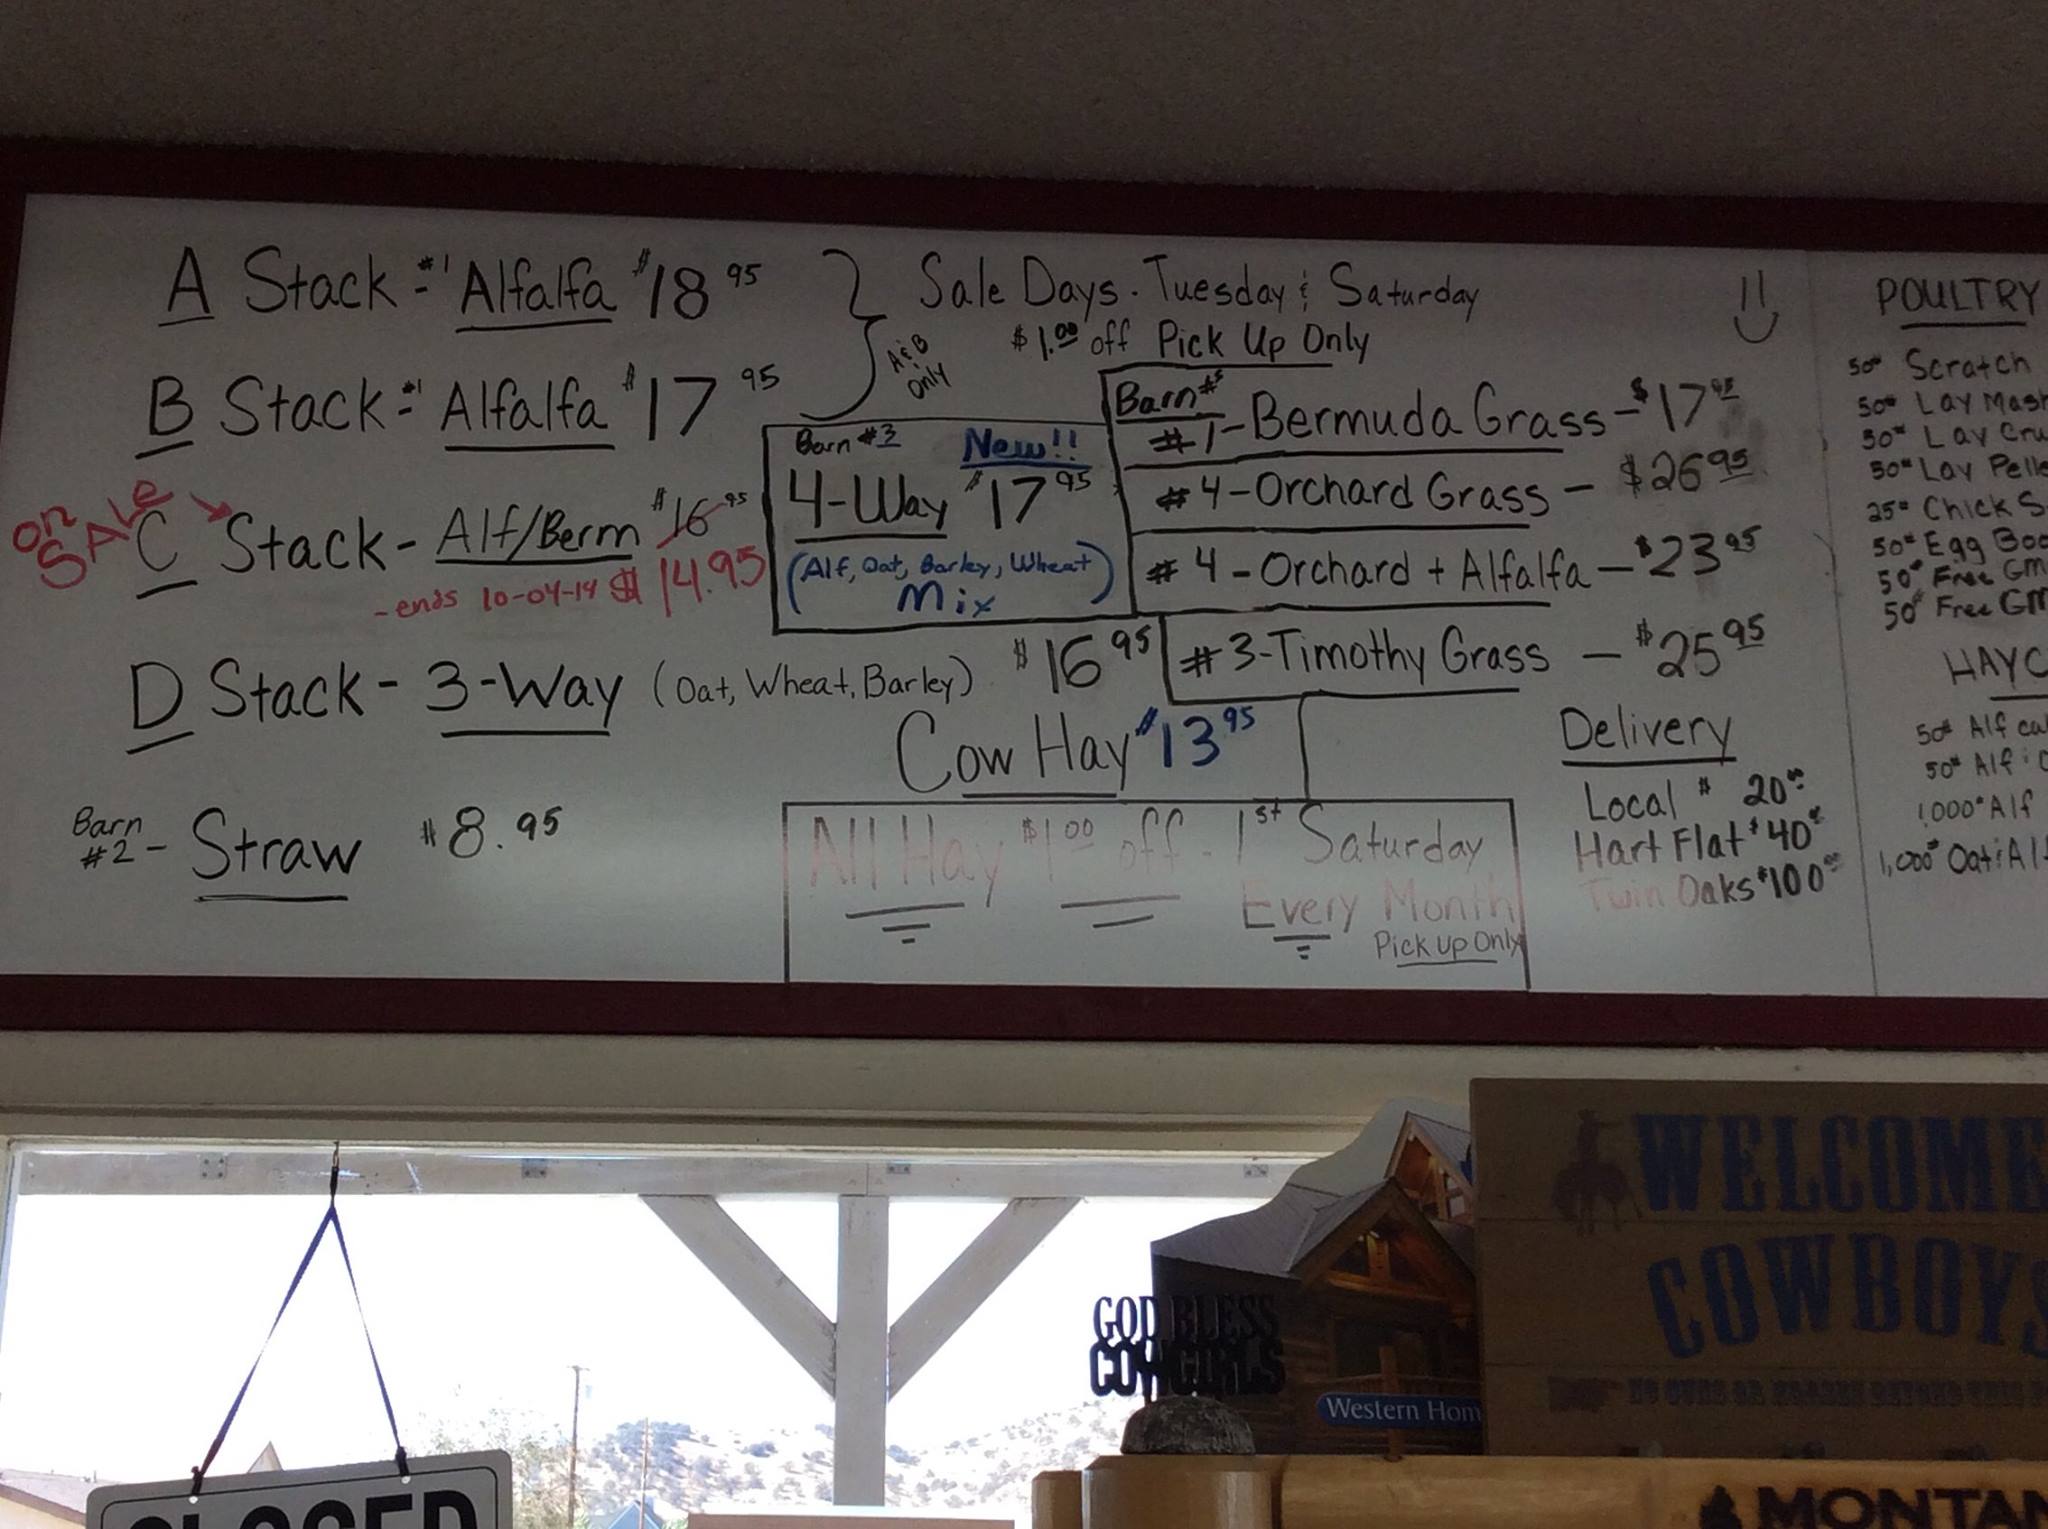 A Stack - #1 Alfalfa $18 95
B Stack - #1 Alfalfa $17 95
A & B Only
Sale Days - Tuesday & Saturday
$1.00 off Pick Up Only
On SALE
C Stack - Alf/Berm $16 95
- ends 10-04-14 $14.95
D Stack - 3-Way (Oat, Wheat, Barley) $16 95
Barn #2 - Straw $8.95
Barn #3 New!!
4-Way $17 95
(Alf, Oat, Barley, Wheat)
Mix
Barn #s
#1 - Bermuda Grass - $17 95
#4 - Orchard Grass - $26 95
#4 - Orchard + Alfalfa - $23 95
#3 - Timothy Grass - $25 95
Cow Hay $13 95
All Hay $1 00 off - 1st Saturday
Every Month
Pick up Only
Delivery
Local $20 00
Hart Flat $40
Twin Oaks $100 00
POULTRY
50# Scratch
50# Lay Mash
50# Lay Cru
50# Lay Pelle
25# Chick S
50# Egg Boo
50# Free GM
50# Free GM
HAYC
50# Alf cu
50# Alf
1,000# Alf
1,000# Oat Alf
WELCOME
COWBOYS
GOD BLESS
COWGIRLS
Western Hom
MONTAN
CLOSED